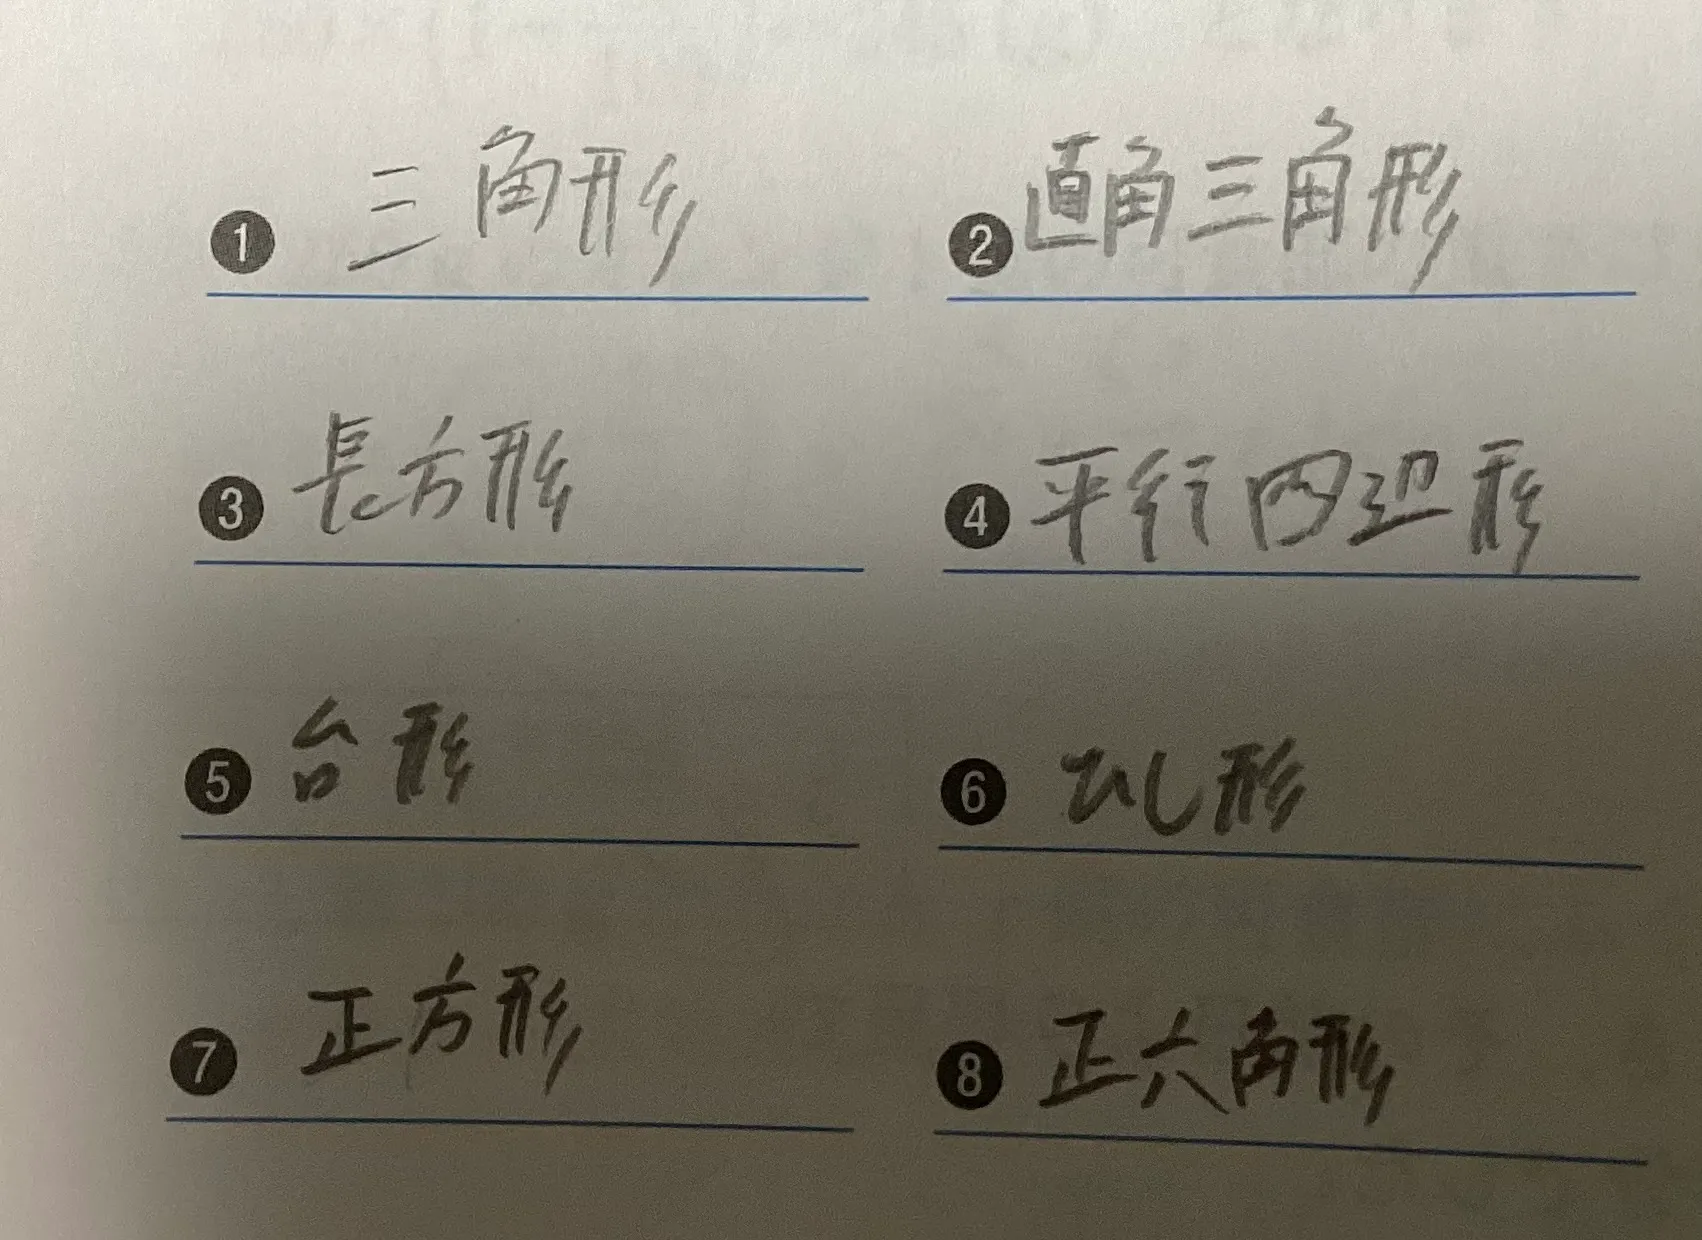 ❶ 三角形 ❷ 直角三角形
❸ 長方形 ❹ 平行四辺形
❺ 台形 ❻ ひし形
❼ 正方形 ❽ 正六角形